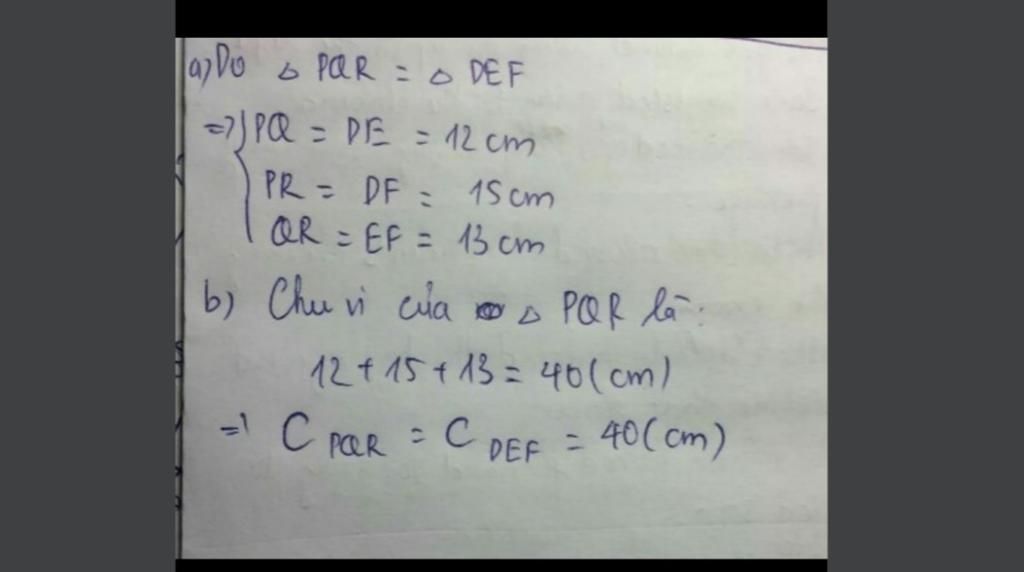 a) Do △ PQR = △ DEF
=> { PQ = DE = 12 cm
PR = DF = 15 cm
QR = EF = 13 cm
b) Chu vi của △ PQR là:
12 + 15 + 13 = 40 (cm)
=> C PQR = C DEF = 40 (cm)